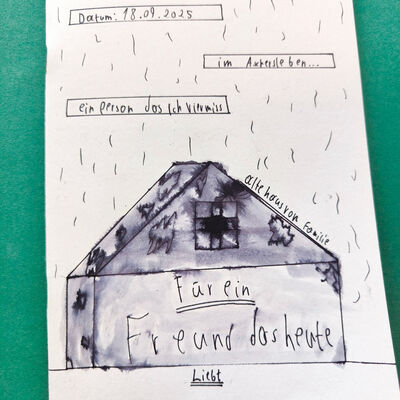 Datum: 18.09.2025
im Axtersleben...
ein person das ich viermiss
alte haus von Familie
Für ein
Freund das heute
Liebt